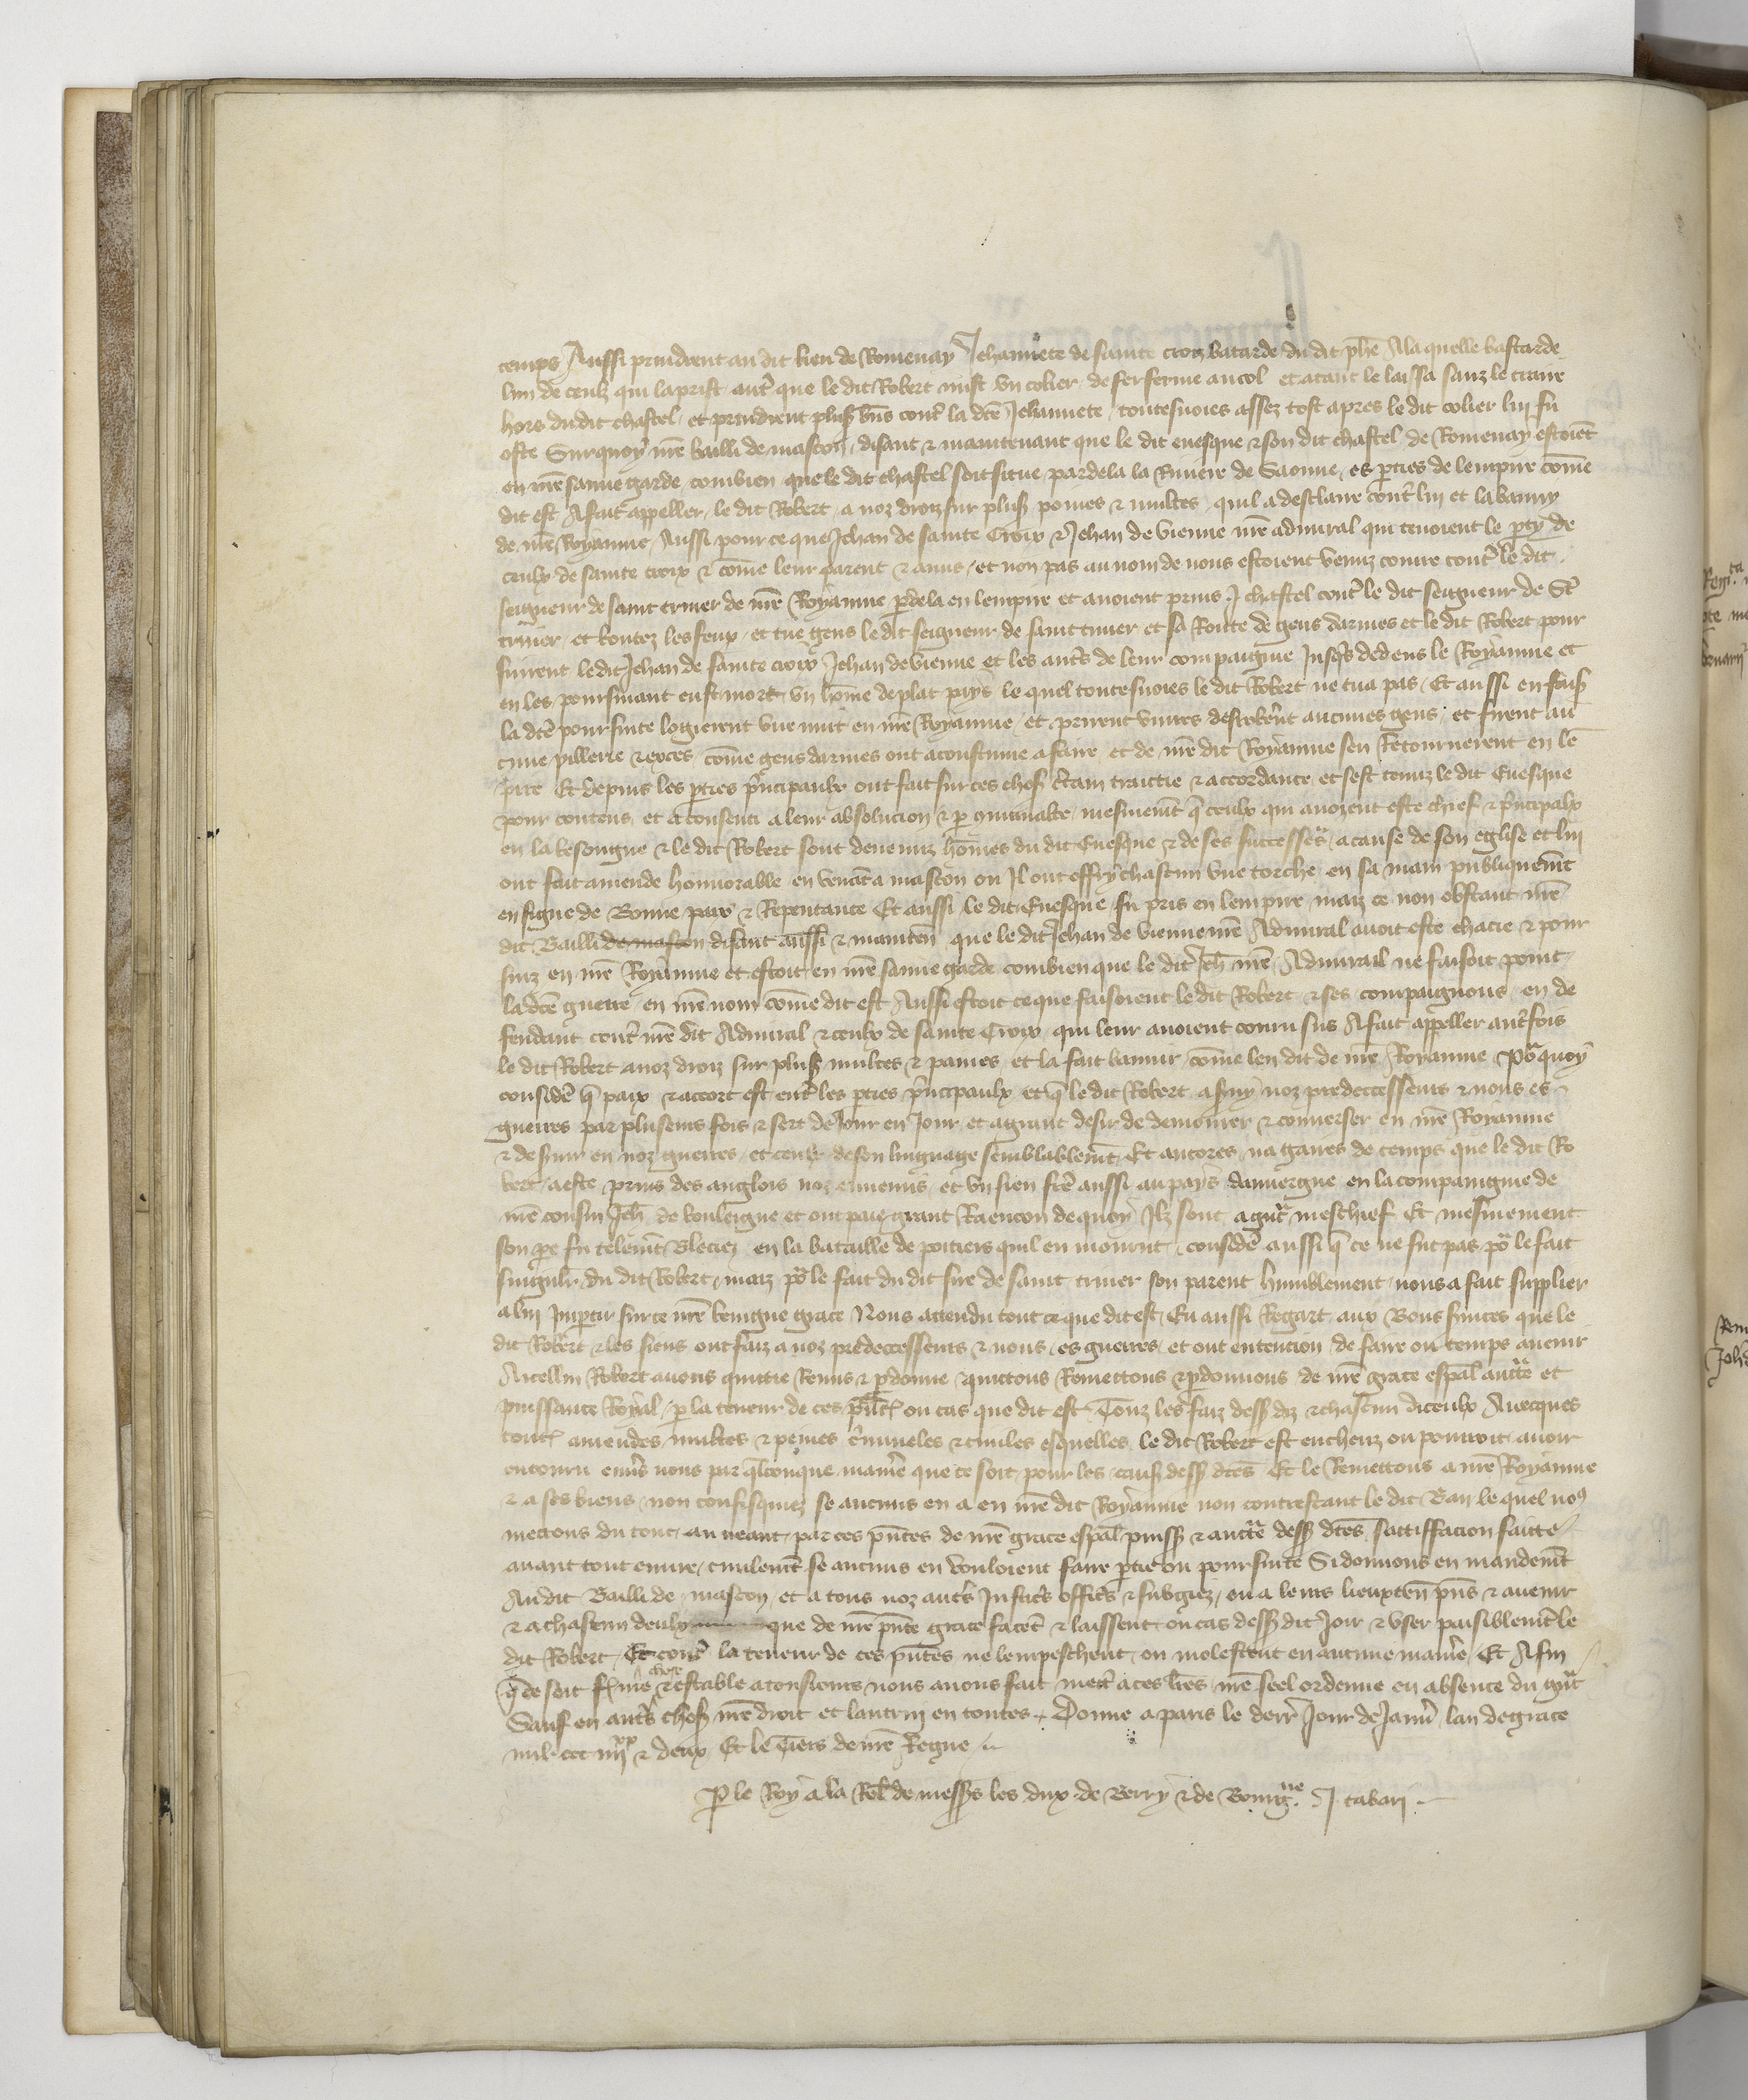 temps Aussi prindrent au dit lieu de Romenay Jehannete de sainte croiz batarde du dit phe A la quelle bastarde
lun de ceulz qui la prist autre que le dit Robert mist un colier de fer ferme au col et atant le laissa sanz le traire
hors du dit chastel et prindrent plus biens contre la dce Jehannete toutesuoies assez tost apres le dit colier lui fu
oste Surquoy nre bailli de mascon disant & maintenant que le dit euesque & son dit chastel de Romenay estoient
en nre sauue garde combien que le dit chastel soit situe pardela la Riuiere de Saonne es pties de lempire come
dit est A fait appeller le dit Robert a noz droiz sur plus peines & multes quil a desclaire contre lui et la banny
de nre Royaume Aussi pour ce que Jehan de sainte Croix & Jehan de vienne nre admiral qui tenoient le pty de
ceulx de sainte croix & come leur parent & amis et non pas au nom de nous estoient venuz courre contre le dit
seigneur de saint triuier de nre Royaume pdela en lempire et auoient prins j chastel contre le dit seigneur de St
triuier et boutez les feux et tue gens le dit seigneur de saint triuier et sa Route de gens darmes et le dit Robert pour
suirent le dit Jehan de sainte croix Jehan de vienne et les autres de leur compaignie Jusques dedens le Royaume et
en les poursuiant eust mort un home de plat pays le quel toutesuoies le dit Robert ne tua pas Et aussi en fais
la dce poursuite logierent une nuit en nre Royaume et prirent viures desroberent aucunes gens et firent au
cune pillerie & exces come gens darmes ont acoustume a faire et de nre dit Royaume sen Retournerent en lem
pire Et depuis les pties principaulx ont fait sur ces choses certain traictie & accordance et sest tenuz le dit Euesque
pour contens et a consenti a leur absolucion & p mesmement que ceulx qui auoyent este chief & principalx
en la besoigne & le dit Robert sont deuenuz homes du dit Euesque & de ses successeurs a cause de son eglise et lui
ont fait amende honnorable en venant a mascon ou Il ont offry chascun une torche en sa main publiquement
en signe de Bonne paix & Repentance Et aussi le dit Euesque fu pris en lempire maiz ce non obstant nre
dit Bailli de mascon disant aussi & mainten que le dit Jehan de vienne nre Admiral auoit este chacie & pour
suiz en nre Royaume et estoit en nre sauuegarde combien que le dit Jeh nre Admirail ne faisoit point
la dce guerre en nre nom come dit est Aussi estoit ce que faisoient le dit Robert & ses compaignons en de
fendant contre nre dit Admiral & ceulx de sainte Croix qui leur auoient couru sus A fait appeller autrefois
le dit Robert a noz droiz sur plus multes & paines et la fait bannir come len dit de nre Royaume Pour quoy
consider que paix & accort est entre les pties principaulx et que le dit Robert a suy noz predecesseurs & nous es
guerres par plusieurs fois & sert de Jour en Jour et a grant desir de demourer & conuerser en nre Royaume
& de suir en noz guerres et ceulx de son linguage semblablement Et ancores na gaires de temps que le dit Ro
bert a este prins des anglois noz ennemis et un sien fre aussi au pays dauuergne en la compaignie de
nre cousin Jeh de bouloigne et ont paie grant Raencon de quoy Ilz sont a grant meschief Et mesmement
son pe fu telement Bleciez en la bataille de poitiers quil en mourut consider aussi que ce ne fut pas pour le fait
singulr du dit Robert maiz pour le fait du dit sire de saint triuier son parent humblement nous a fait supplier
a lui Impartir sur ce nre benigne grace Nous attendu tout ce que dit est Eu aussi Regart aux Bons seruices que le
dit Robert & les siens ont faiz a noz predecesseurs & nous es guerres et ont entencion de faire ou temps auenir
A icellui Robert auons quittie Remis & pdonne quittons Remettons & pdonnons de nre grace espal auctorite et
puissance Royal p la teneur de ces pntes ou cas que dit est Touz les faiz dess diz & chascun diceulx Auecques
toutes amendes multes & peines criminelles & ciuiles esquelles le dit Robert est encheuz ou pourroit auoir
encouru enuers nous par quelconque maniere que ce soit pour les causes dess dces Et le Remettons a nre Royaume
& a ses biens non confisquez se aucuns en a en nre dit Royaume non contrestant le dit Ban le quel nous
mettons du tout au neant par ces pntes de nre grace espal puiss & auctorite dess dces satiffacion faitte
auant tout euure ciuilement se aucuns en vouloient faire ptie ou poursuite Si donnons en mandement
Au dit Bailli de mascon et a tous noz autres Justiciers officiers & subgiez ou a leurs lieuxten pns & auenir
& a chascun deulx que de nre pnte grace facent & laissent ou cas dess dit Joir & user paisiblement le
dit Robert Et contre la teneur de ces pntes ne lempeschent ou molestent en aucune maniere Et Afin
que ce soit ferme chose & estable a tousiours nous auons fait mettre a ces lres nre seel ordenne en absence du grant
Sauf en autres choses nre droit et lautrui en toutes Donne a paris le derr Jour de Januier lan de grace
mil ccc iiijxx & deux Et le Tiers de nre Regne
P le Roy a la Rel de mess les dux de Berry & de Bourgne J tabari